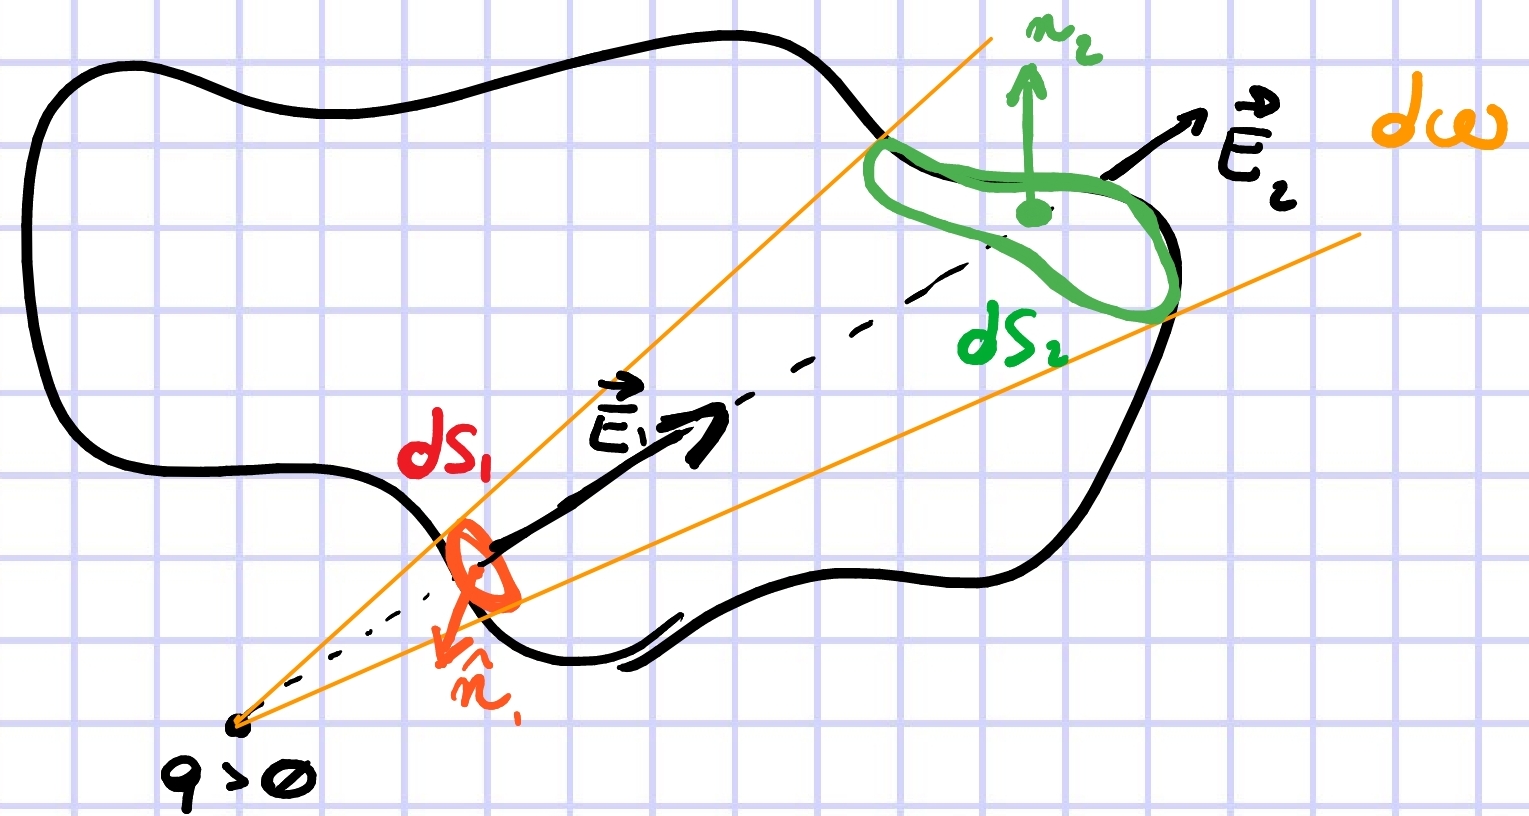 n₂
E⃗₂
dω
dS₂
E⃗₁
dS₁
n̂₁
q > 0